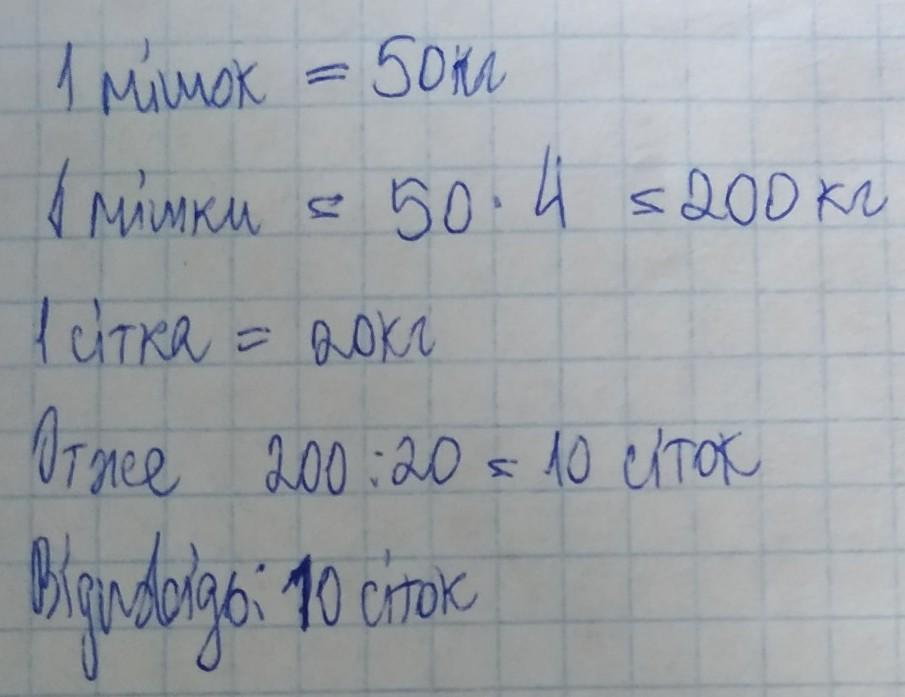 1 мішок = 50кг
1 мішки = 50 · 4 = 200 кг
1 сітка = 20кг
Отже 200 : 20 = 10 сіток
Відповідь: 10 сіток